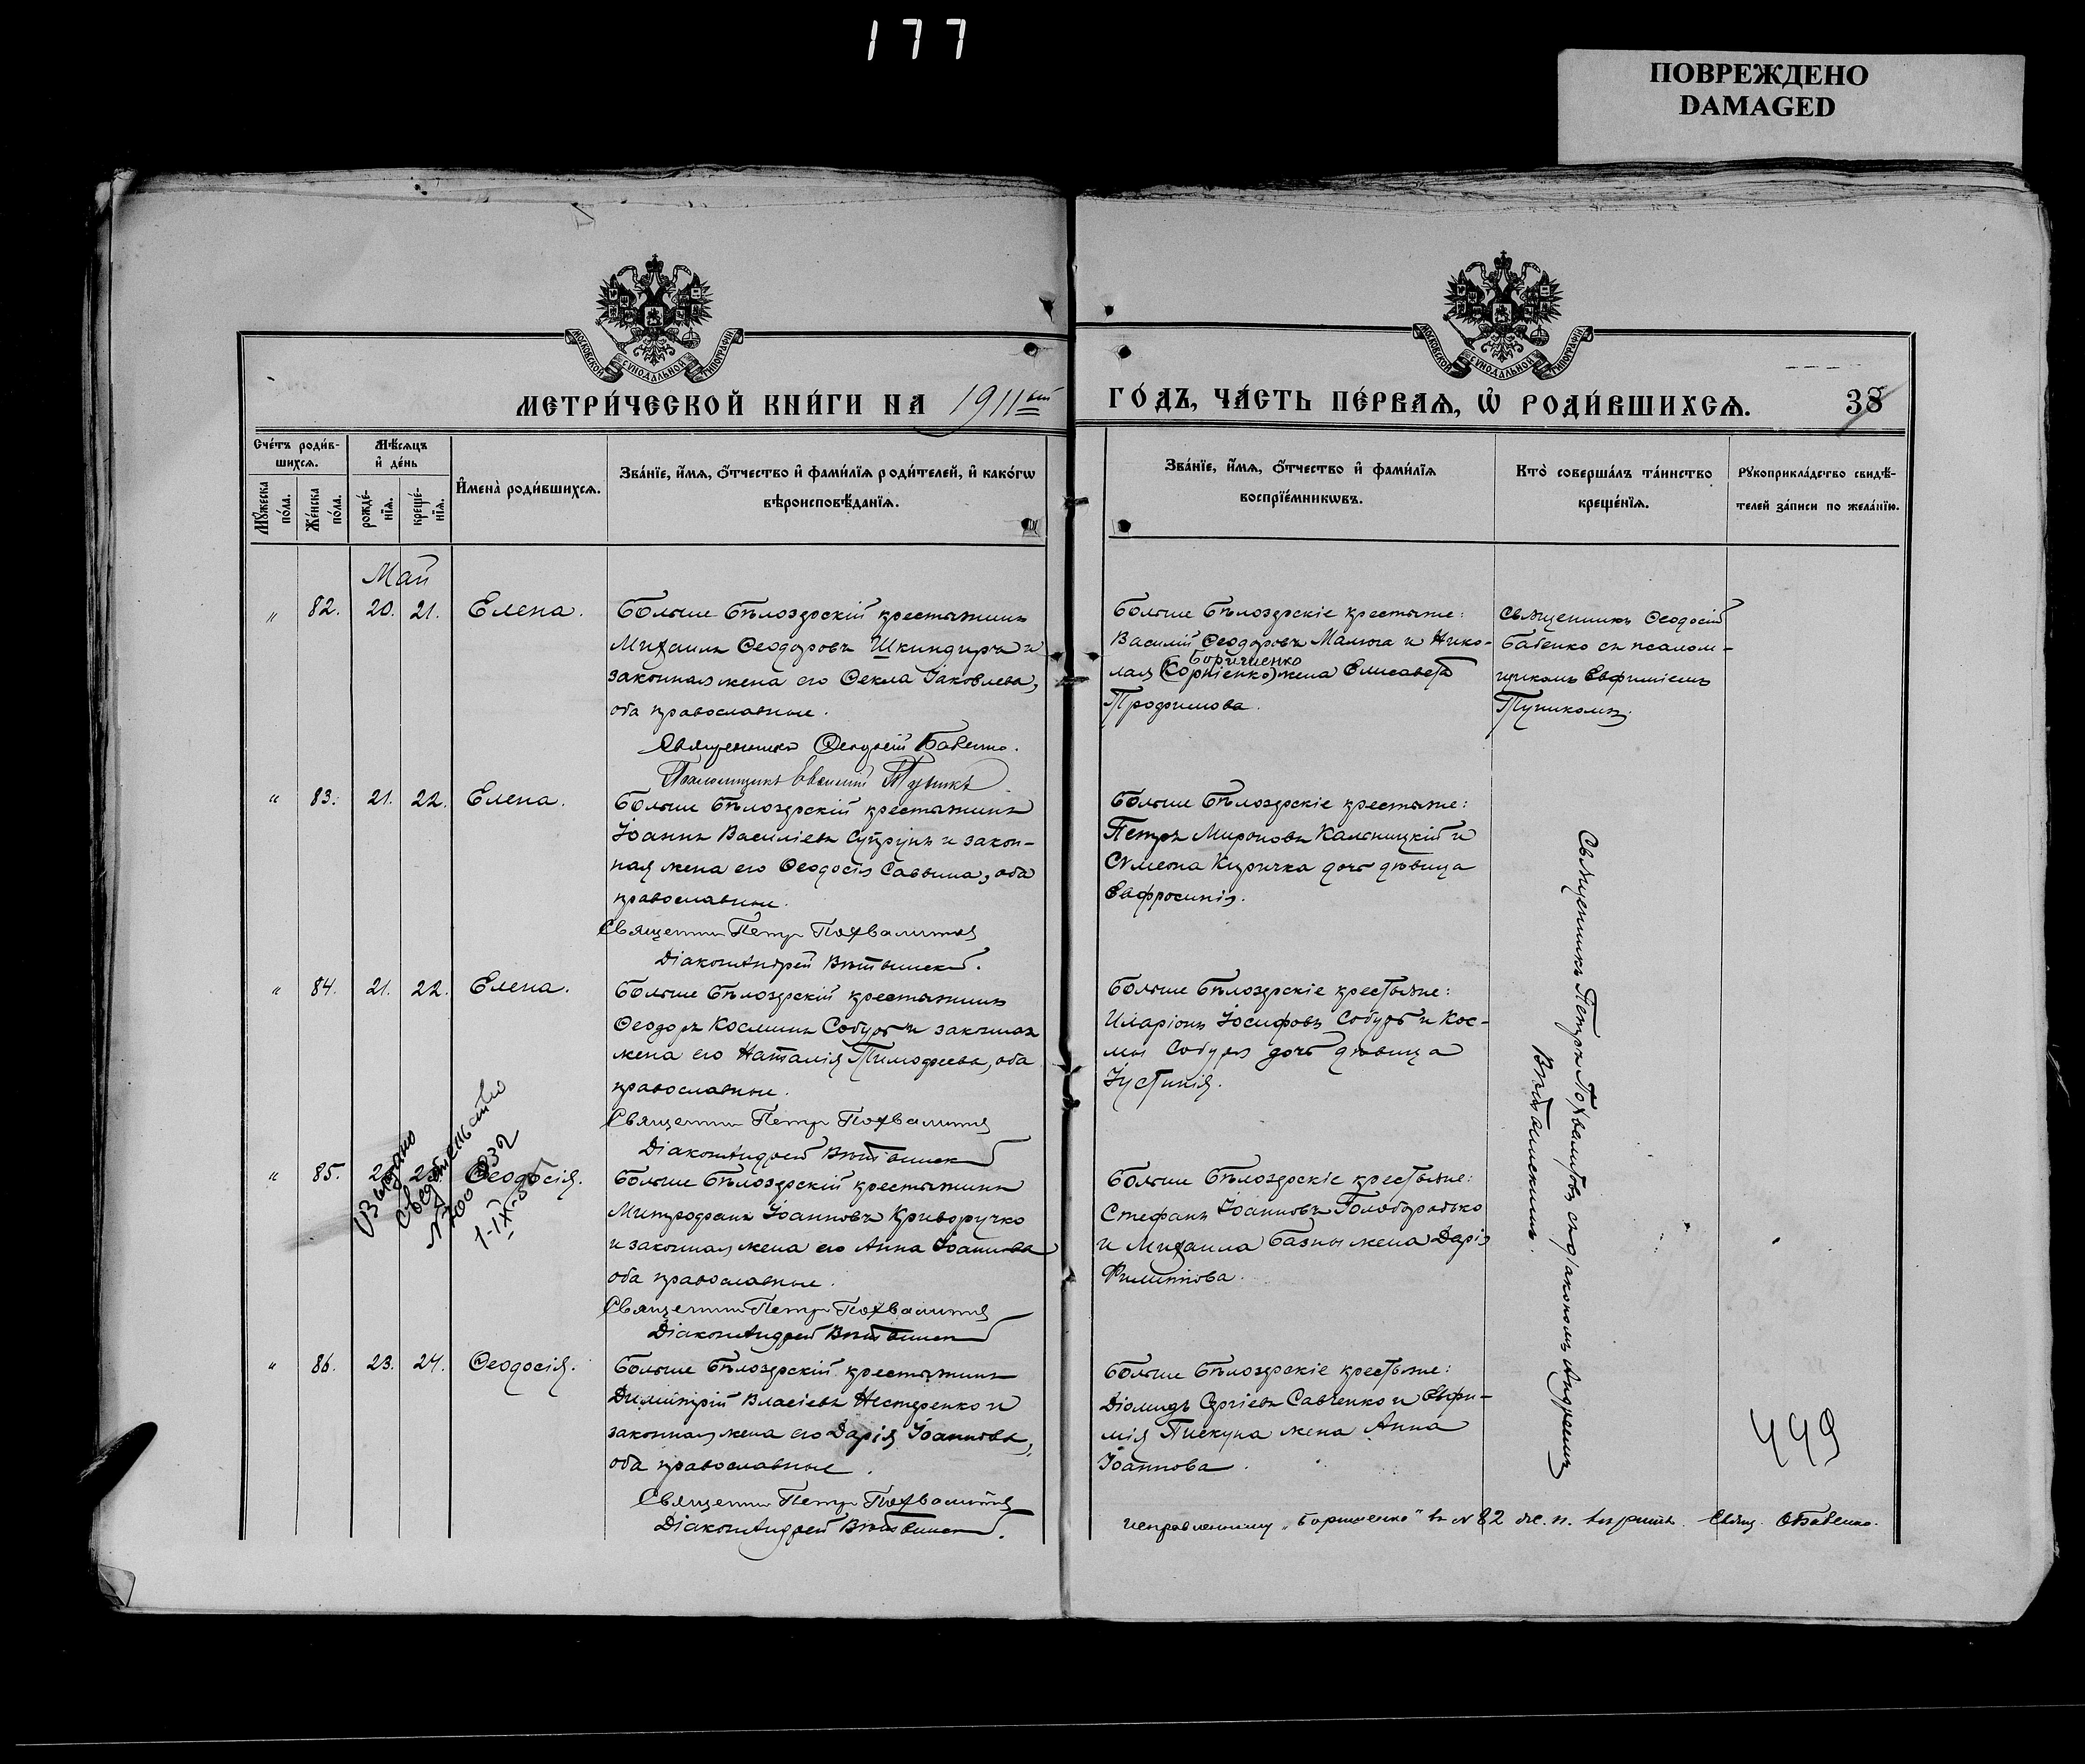 177
ПОВРЕЖДЕНО
DAMAGED
МОСКОВСКОЙ СѴНОДАЛЬНОЙ ТИПОГРАФІИ
МОСКОВСКОЙ СѴНОДАЛЬНОЙ ТИПОГРАФІИ
МЕТРИ́ЧЕСКОЙ КНИ́ГИ НА 1911ый ГО́ДЪ, ЧА́СТЬ ПЕ́РВАѦ, Ѽ РОДИ́ВШИХСѦ. 38
Сче́тъ роди́в-
шихсѧ.
Мѣ́сѧцъ
и҆ де́нь
Мꙋ́жеска по́ла.
Же́нска по́ла.
рожде́-
нїѧ.
креще́-
нїѧ.
И҆мена̀ роди́вшихсѧ.
Зва́нїе, и҆́мѧ, ѻ҆́тчество и҆ фами́лїѧ роди́телей, и҆ како́гѡ
вѣроисповѣ́данїѧ.
Зва́нїе, и҆́мѧ, ѻ҆́тчество и҆ фами́лїѧ
воспрїе́мникѡвъ.
Кто̀ соверша́лъ та́инство
креще́нїѧ.
Рꙋкоприкла́дство свидѣ́-
телей за́писи по жела́нїю.
Май
" 82. 20. 21. Елена.
Больше Бѣлозерскій крестьянинъ
Михаилъ Ѳеодоровъ Шкиндиръ и
законная жена его Ѳекла Іаковлева,
оба православные.
Священникъ Ѳеодосій Бабенко.
Псаломщикъ Евѳимій Тупикъ
Больше Бѣлозерскіе крестьяне:
Василій Ѳеодоровъ Малюга и Нико-
Боришенко
лая (Корніенко) жена Елисавета
Трофимова.
Священникъ Ѳеодосій
Бабенко съ псалом-
щикомъ Евфиміемъ
Тупикомъ.
" 83. 21. 22. Елена.
Больше Бѣлозерскій крестьянинъ
Іоаннъ Василіевъ Супрунъ и закон-
ная жена его Ѳеодосія Саввина, оба
православные.
Священникъ Петръ Похвалитовъ
Діаконъ Андрей Витвинскій.
Больше Бѣлозерскіе крестьяне:
Петръ Мироновъ Калѣницкій и
Сѵмеона Киричка дочь дѣвица
Евфросинія.
" 84. 21. 22. Елена.
Больше Бѣлозерскій крестьянинъ
Ѳеодоръ Косминъ Собурь и законная
жена его Наталія Тимоѳеева, оба
православные.
Священникъ Петръ Похвалитовъ
Діаконъ Андрей Витвинскій
Больше Бѣлозерскіе крестьяне:
Иларіонъ Іосифовъ Собурь и Кос-
мы Собуря дочь дѣвица
Іустинія.
" 85. Ѳеодосія.
Выдано
свидѣтельство
Больше Бѣлозерскій крестьянинъ
Митрофанъ Іоанновъ Криворучко
и законная жена его Анна Іоаннова
оба православные.
Священникъ Петръ Похвалитовъ
Діаконъ Андрей Витвинскій
Больше Бѣлозерскіе крестьяне:
Стефанъ Іоанновъ Голобородько
и Михаила Базны жена Дарія
Филиппова.
" 86. 23. 24. Ѳеодосія.
Больше Бѣлозерскій крестьянинъ
Димитрій Власіевъ Нестеренко и
законная жена его Дарія Іоаннова,
оба православные.
Священникъ Петръ Похвалитовъ
Діаконъ Андрей Витвинскій.
Больше Бѣлозерскіе крестьяне:
Діомидъ Сергіевъ Савченко и Евфи-
мія Пискуна жена Анна
Іоаннова.
Священникъ Петръ Похвалитовъ съ діакономъ Андреемъ
Витвинскимъ.
449
исправленному „Боришенко" въ № 82 ж. п. вѣрить. Свящ. Ѳ Бабенко.